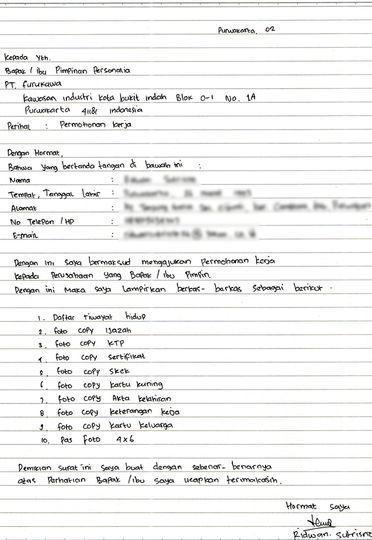 Purwakarta, 02
Kepada Yth.
Bapak / Ibu Pimpinan Personalia
PT. Furukawa
Kawasan industri kota bukit indah Blok D-1 No. 1A
Purwakarta 41181 Indonesia
Perihal : Permohonan kerja
Dengan Hormat,
Bahwa yang bertanda tangan di bawah ini :
Nama :
Tempat, Tanggal Lahir :
Alamat :
No Telepon / HP :
E-mail :
Dengan ini saya bermaksud mengajukan Permohonan kerja
kepada Perusahaan yang Bapak / Ibu Pimpin.
Dengan ini Maka saya Lampirkan berkas-berkas sebagai berikut.
1. Daftar riwayat hidup
2. foto copy ijazah
3. foto copy KTP
4. foto copy sertifikat
5. foto copy skck
6. foto copy kartu kuning
7. foto copy Akta kelahiran
8. foto copy keterangan kerja
9. foto copy kartu keluarga
10. Pas foto 4x6
Demikian surat ini saya buat dengan sebenar-benarnya
atas Perhatian Bapak / Ibu saya ucapkan terimakasih.
Hormat saya
Ridwan. Sutrisno